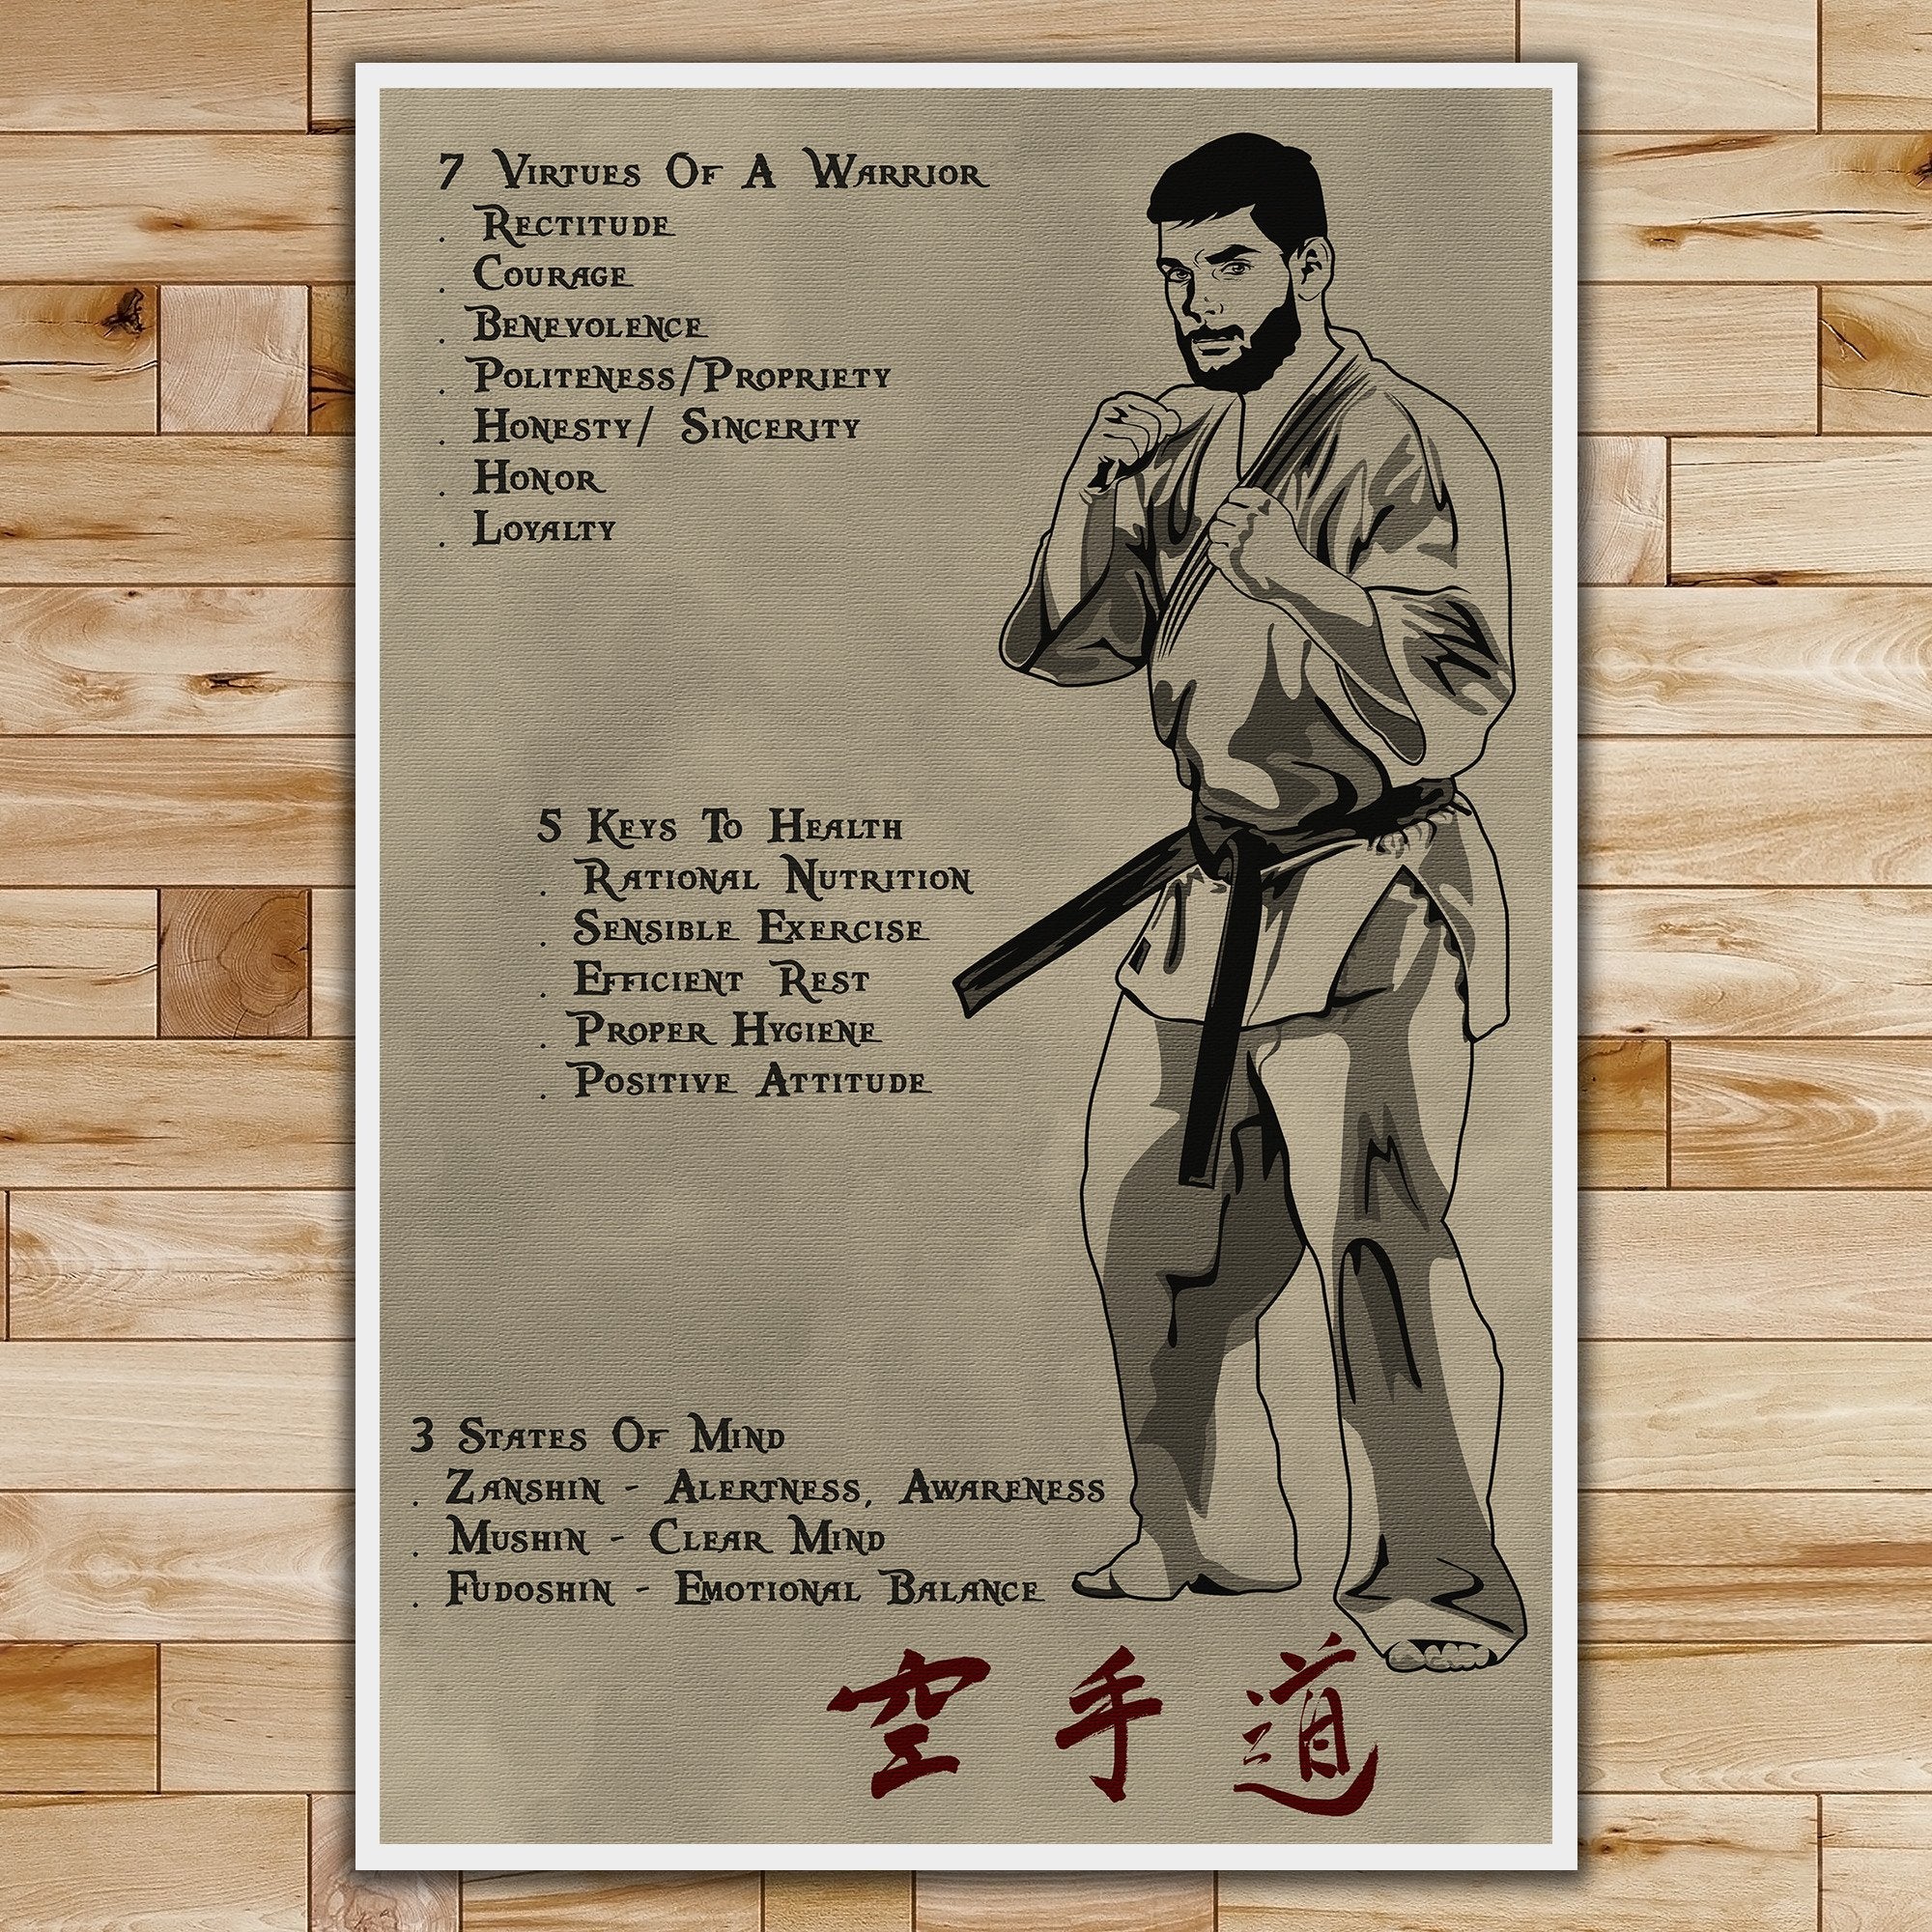 7 Virtues Of A Warrior
. Rectitude
. Courage
. Benevolence
. Politeness/Propriety
. Honesty/ Sincerity
. Honor
. Loyalty
5 Keys To Health
. Rational Nutrition
. Sensible Exercise
. Efficient Rest
. Proper Hygiene
. Positive Attitude
3 States Of Mind
. Zanshin - Alertness, Awareness
. Mushin - Clear Mind
. Fudoshin - Emotional Balance
空手道